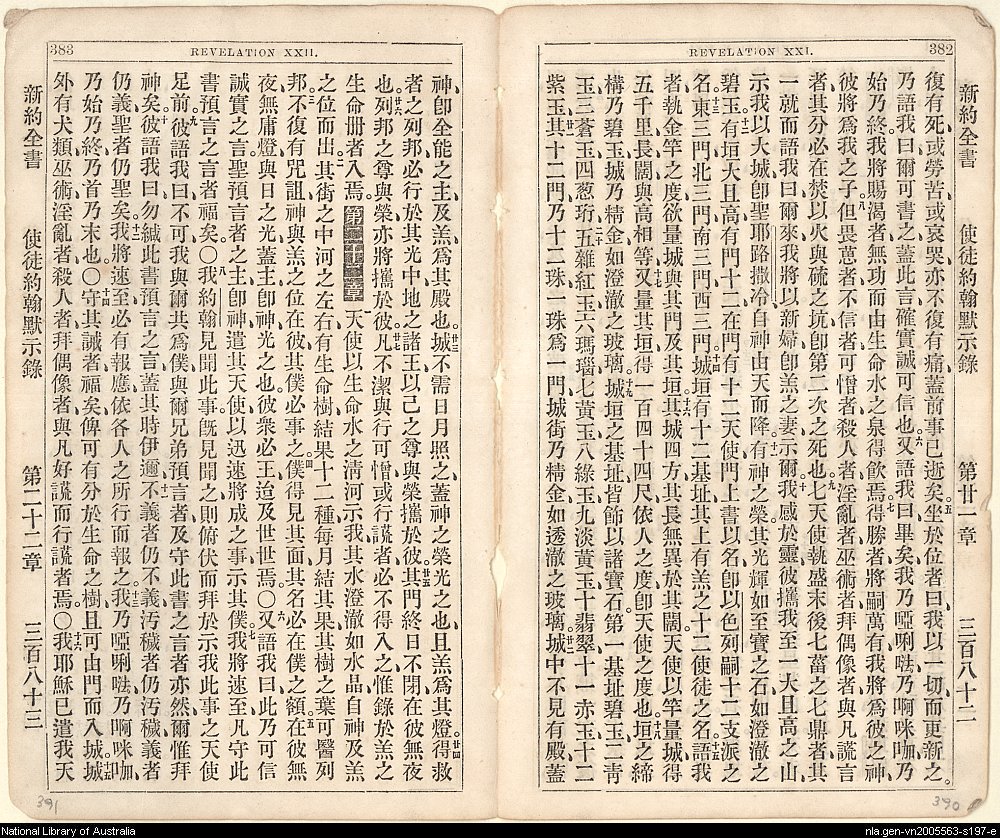 382
REVELATION XXI.
新約全書 使徒約翰默示錄 第廿一章 三百八十二
復有死、或勞苦、或哀哭、亦不復有痛、蓋前事已逝矣。五坐於位者曰、我以一切而更新之。
乃語我曰、爾可書之、蓋此言確實誠可信也。六又語我曰、畢矣、我乃啞唎、乃啊咪咖、乃
始乃終、我將賜渴者、無功而由生命水之泉得飲焉。七得勝者將嗣萬有、我將爲彼之神、
彼將爲我之子。八但畏葸者、不信者、可憎者、殺人者、淫亂者、巫術者、拜偶像者、與凡謊言
者、其分必在焚以火與硫之坑、卽第二次之死也。九七天使執盛末後七菑之七鼎者、其
一就而語我曰、爾來、我將以新婦卽羔之妻示爾。十我感於靈、彼攜我至一大且高之山、
示我以大城、卽聖耶路撒冷、自神由天而降。十一有神之榮、其光輝如至寶之石、如澄澈之
碧玉。十二有垣大且高、有門十二、在門有十二天使、門上書以名、卽以色列嗣十二支派之
名。十三東三門、北三門、南三門、西三門。十四城垣有十二基址、其上有羔之十二使徒之名。十五語我
者執金竿之度、欲量城與其門及其垣。十六其城四方、其長無異於其闊、天使以竿量城、得
五千里、長闊與高相等。十七又量其垣、得一百四十四尺、依人之度、卽天使之度也。十八垣之締
構乃碧玉、城乃精金、如澄澈之玻璃。十九城垣之基址、皆飾以諸寶石、第一基址碧玉、二青
玉、三蒼玉、四葱珩、二十五雜紅玉、六瑪瑙、七黃玉、八綠玉、九淡黃玉、十翡翠、十一赤玉、十二
紫玉。廿一其十二門乃十二珠、一珠爲一門、城街乃精金、如透澈之玻璃。廿二城中不見有殿、蓋
390
383
REVELATION XXII.
神卽全能之主、及羔、爲其殿也。廿三城不需日月照之、蓋神之榮光之也、且羔爲其燈。廿四得救
者之列邦、必行於其光中、地之諸王以己之尊與榮攜於彼。廿五其門終日不閉、在彼無夜
也。廿六列邦之尊與榮、亦將攜於彼。廿七凡不潔、與行可憎、或行謊者、必不得入之、惟錄於羔之
生命册者入焉。第二十二章一天使以生命水之清河示我、其水澄澈如水晶、自神及羔
之位而出。二其街之中、河之左右、有生命樹、結果十二種、每月結其果、其樹之葉可醫列
邦。三不復有咒詛、神與羔之位在彼、其僕必事之。四僕得見其面、其名必在僕之額。五在彼無
夜、無庸燈與日之光、蓋主卽神光之也、彼衆必王、迨及世世焉。〇六又語我曰、此乃可信
誠實之言、聖預言者之主卽神、遣其天使、以迅速將成之事示其僕。七我將速至、凡守此
書預言之言者福矣。〇八我約翰見聞此事、旣見聞之、則俯伏而拜於示我此事之天使
足前。九彼語我曰、不可、我與爾其爲僕、與爾兄弟預言者、及守此書之言者亦然、爾惟拜
神矣。十彼語我曰、勿緘此書預言之言、蓋其時伊邇。十一不義者仍不義、汚穢者仍汚穢、義者
仍義、聖者仍聖矣。十二我將速至、必有報應、依各人之所行而報之。十三我乃啞唎、乃啊咪咖、
乃始乃終、乃首乃末也。〇十四守其誡者福矣、俾可有分於生命之樹、且可由門而入城。十五城
外有犬類、巫術、淫亂者、殺人者、拜偶像者、與凡好謊而行謊者焉。〇十六我耶穌已遣我天
新約全書 使徒約翰默示錄 第二十二章 三百八十三
391
National Library of Australia
nla.gen-vn2005563-s197-e